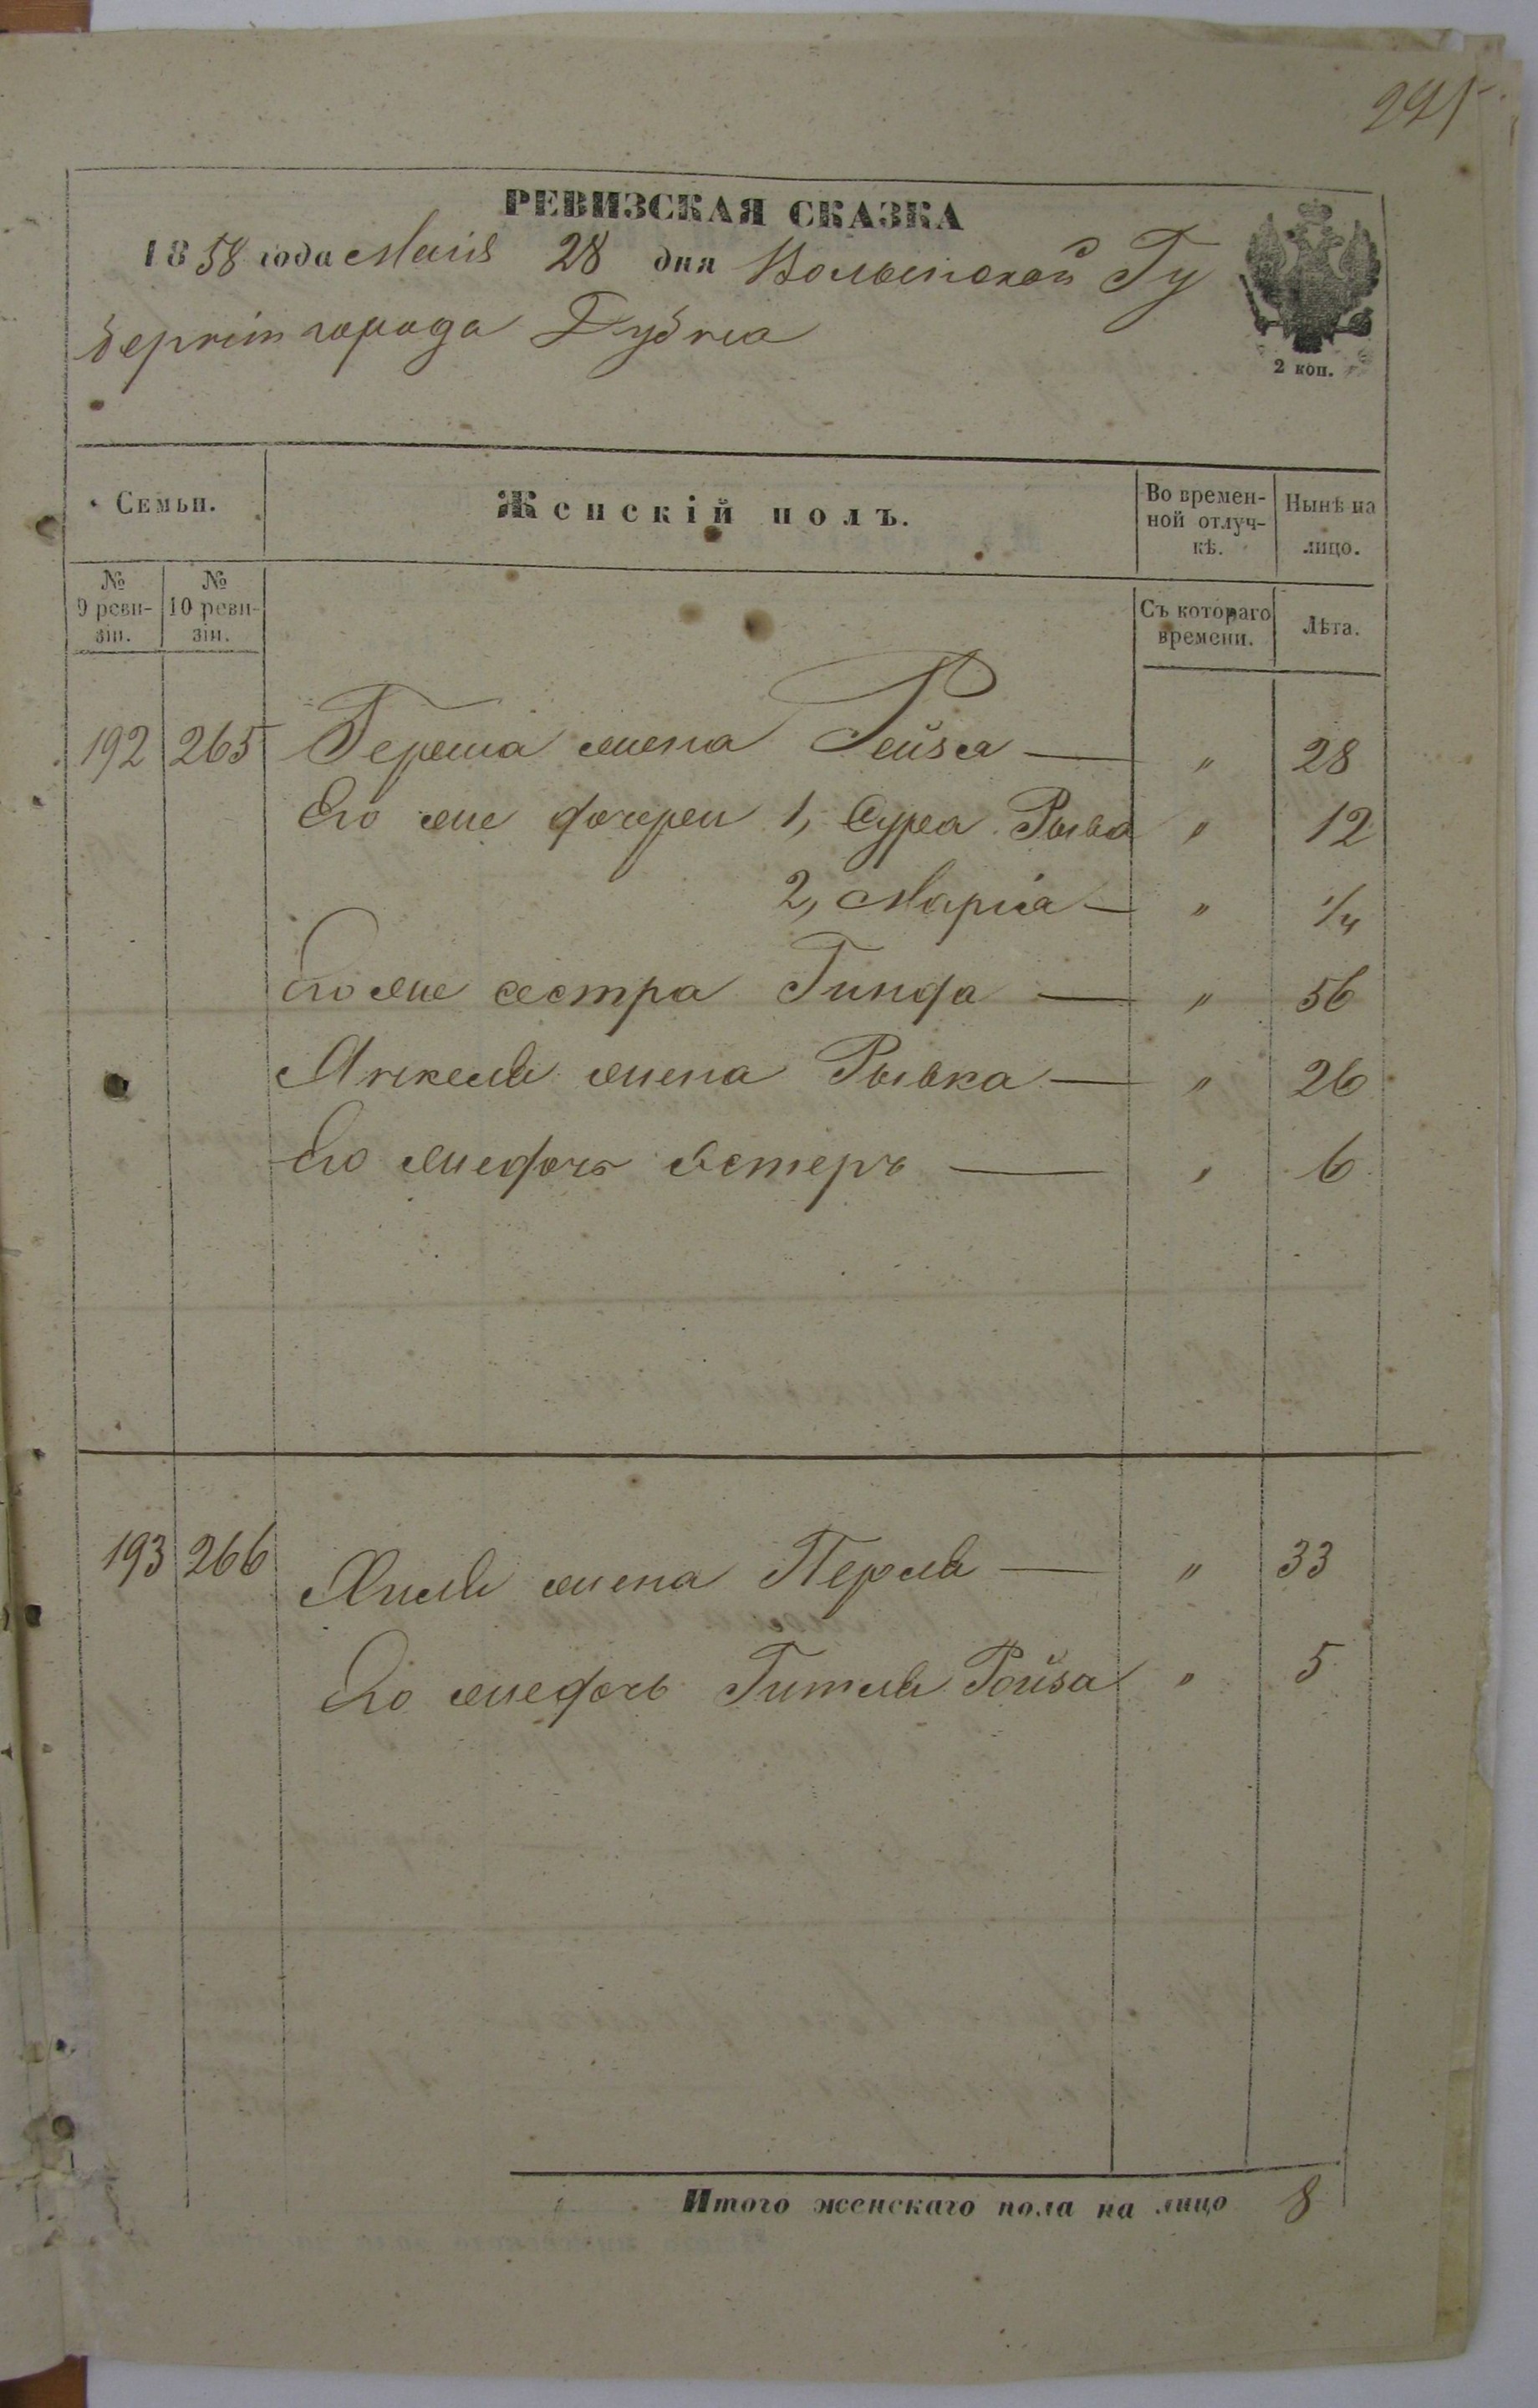 295
РЕВИЗСКАЯ СКАЗКА
1858 года Маія 28 дня Волынской Гу
берніи города Дубна
2 коп.
Семьи.
Женскій полъ.
Во времен-
ной отлуч-
кѣ.
Нынѣ на
лицо.
№
9 реви-
зіи.
№
10 реви-
зіи.
Съ котораго
времени.
Лѣта.
192 265 Герша жена Рейза — " 28
Его же дочери 1, Сура Рыва " 12
2, Маріа — " 1/4
Его же сестра Гинда — " 56
Янкеля жена Рывка — " 26
Его же дочь Естеръ — " 6
193 266 Хиля жена Перля — " 33
Его же дочь Гитля Ройза " 5
Итого женскаго пола на лицо 8